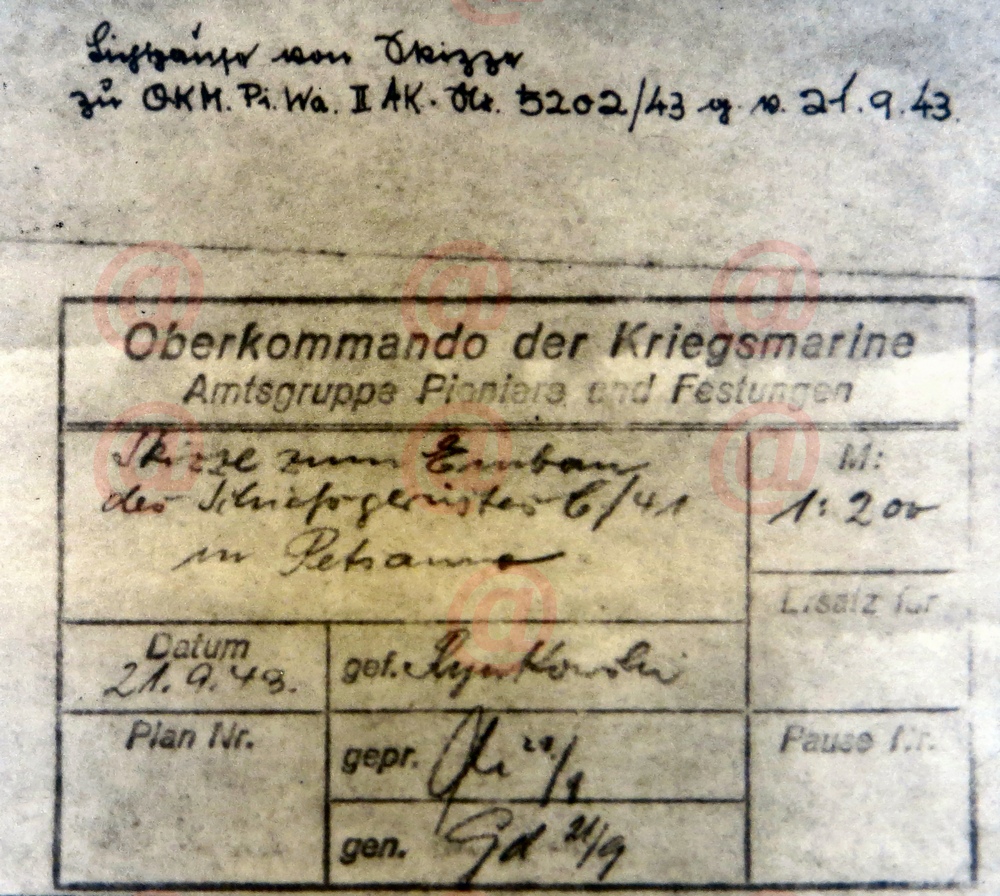 Lichtpause von Skizze
zu OKM. Pi. Wa. II AK. Nr. 5202/43 g. v. 21.9.43.
Oberkommando der Kriegsmarine
Amtsgruppe Pioniere und Festungen
Skizze zum Einbau
des Schießgerüstes C/41
in Petsamo
M:
1:200
Ersatz für
Datum
21.9.43.
gef.
Plan Nr.
gepr.
Pause Nr.
gen. Gd 21/9